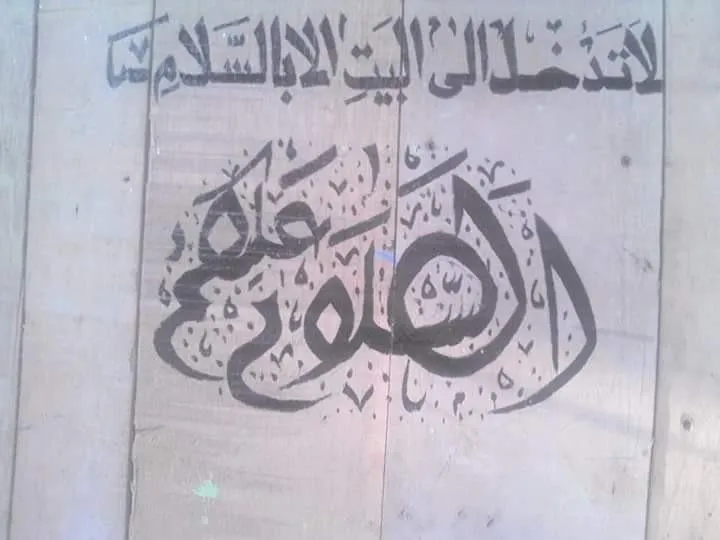 لَا تَدْخُلْ الى البَيتِ الا بالسَّلامِ
السلام عليكم